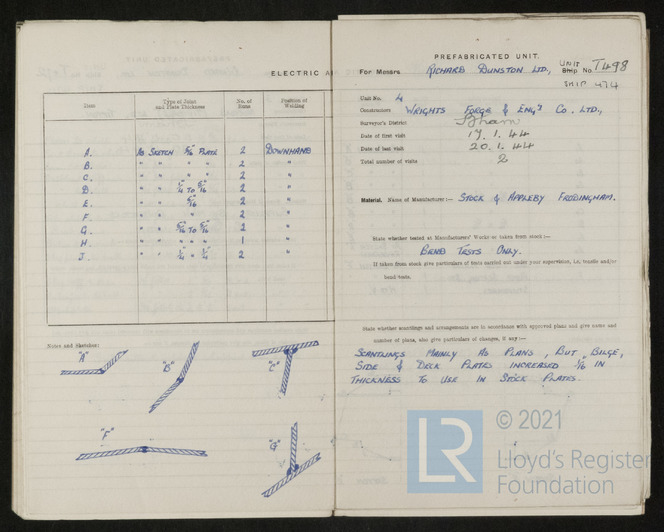 ELECTRIC A
Item
Type of Joint and Plate Thickness
No. of Items
Position of Welding
A. AS SKETCH 5/16" PLATE 2 DOWNHAND
B. " " " 2 "
C. " " " 2 "
D. " " 1/4" TO 5/16" 2 "
E. " " 5/16" 2 "
F. " " " 2 "
G. " " 5/16" TO 5/16" 2 "
H. " " " " 1 "
J. " " 1/4" " 1/4" 2 "
Notes and Sketches:
"A"
"B"
"C"
"F"
"G"
PREFABRICATED UNIT.
For Messrs RICHARD DUNSTON LTD., UNIT Ship No. T498
SHIP 474
Unit No. 4
Constructors WRIGHTS FORGE & ENG'G CO. LTD.,
Surveyor's District
Date of first visit 17.1.44
Date of last visit 20.1.44
Total number of visits 2
Material. Name of Manufacturer:— STOCK & APPLEBY FRODINGHAM.
State whether tested at Manufacturers' Works or taken from stock:—
BEND TESTS ONLY.
If taken from stock give particulars of tests carried out under your supervision, i.e, tensile and/or
bend tests.
State whether scantlings and arrangements are in accordance with approved plans and give name and
number of plans, also give particulars of changes, if any:—
SCANTLINGS MAINLY AS PLANS, BUT, BILGE,
SIDE & DECK PLATES INCREASED 1/16 IN
THICKNESS TO USE IN STOCK PLATES.
© 2021
LR
Lloyd's Register
Foundation